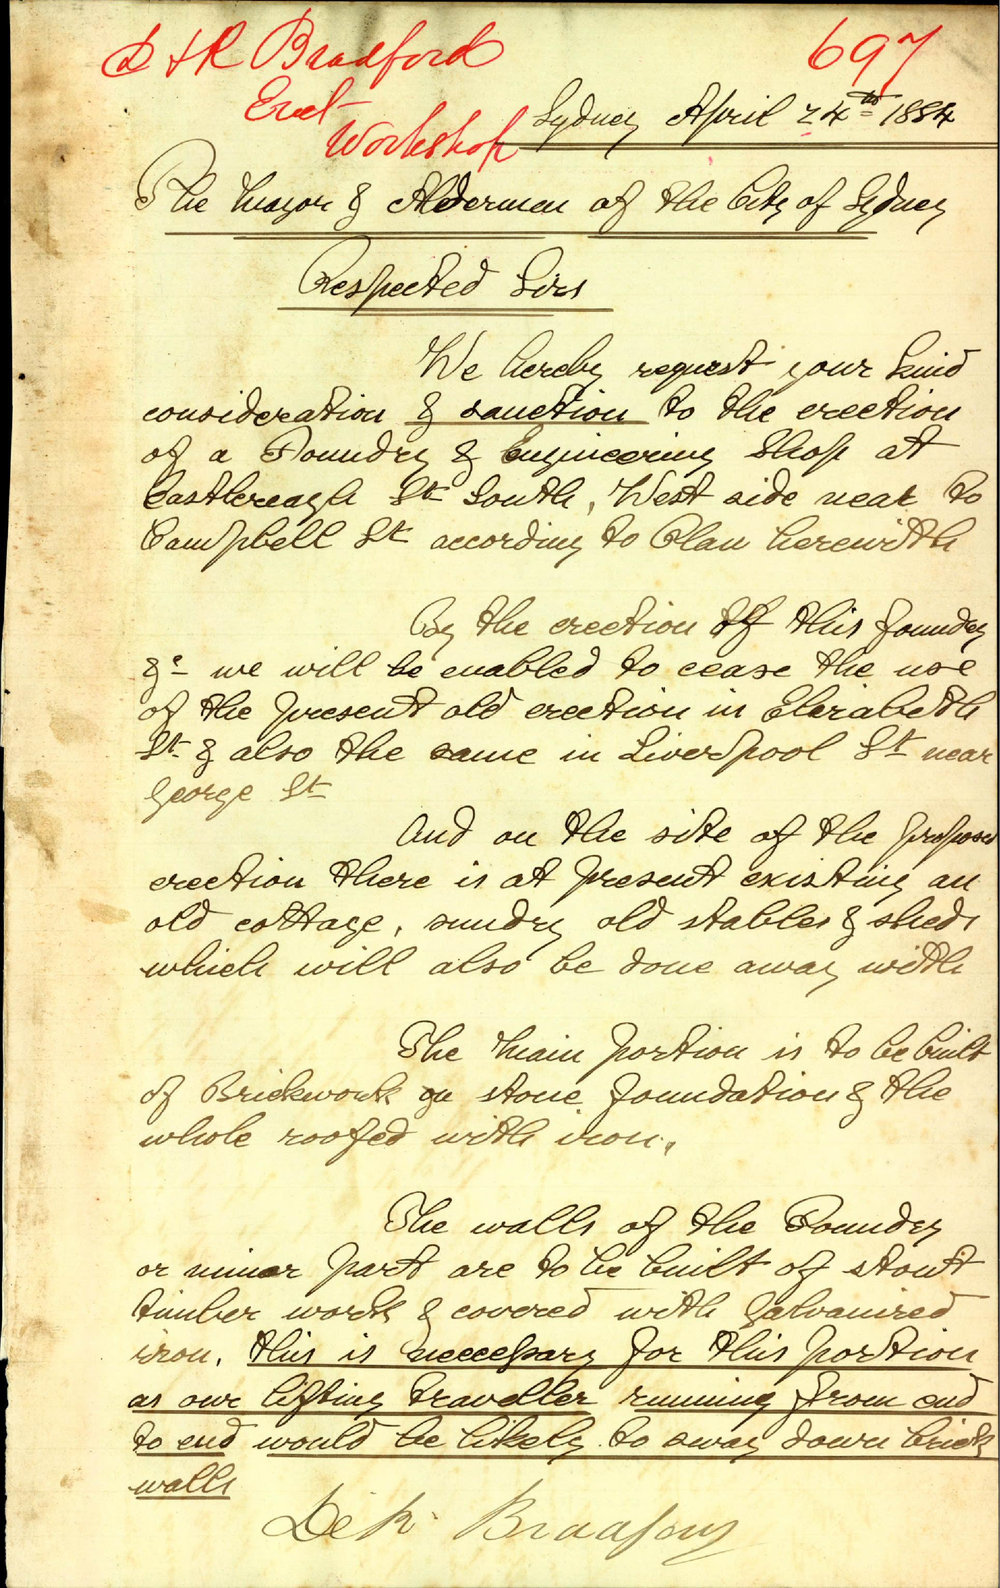 D & R Bradford
697
Erect
Workshop
Sydney April 24th 1884
The Mayor & Aldermen of the City of Sydney
Respected Sirs
We hereby request your kind
consideration & sanction to the erection
of a Foundry & Engineering Shop at
Castlereagh St South, West side near to
Campbell St according to Plan herewith
By the erection of this foundry
&c we will be enabled to cease the use
of the present old erection in Elizabeth
St & also the same in Liverpool St near
George St
And on the site of the proposed
erection there is at present existing an
old cottage, sundry old stables & sheds
which will also be done away with
The Main portion is to be built
of Brickwork on stone foundation & the
whole roofed with iron.
The walls of the Foundry
or minor part are to be built of stout
timber work & covered with Galvanized
iron. this is neccessary for this portion
as our lifting traveller running from end
to end would be likely to sway down brick
walls
D & R. Bradford